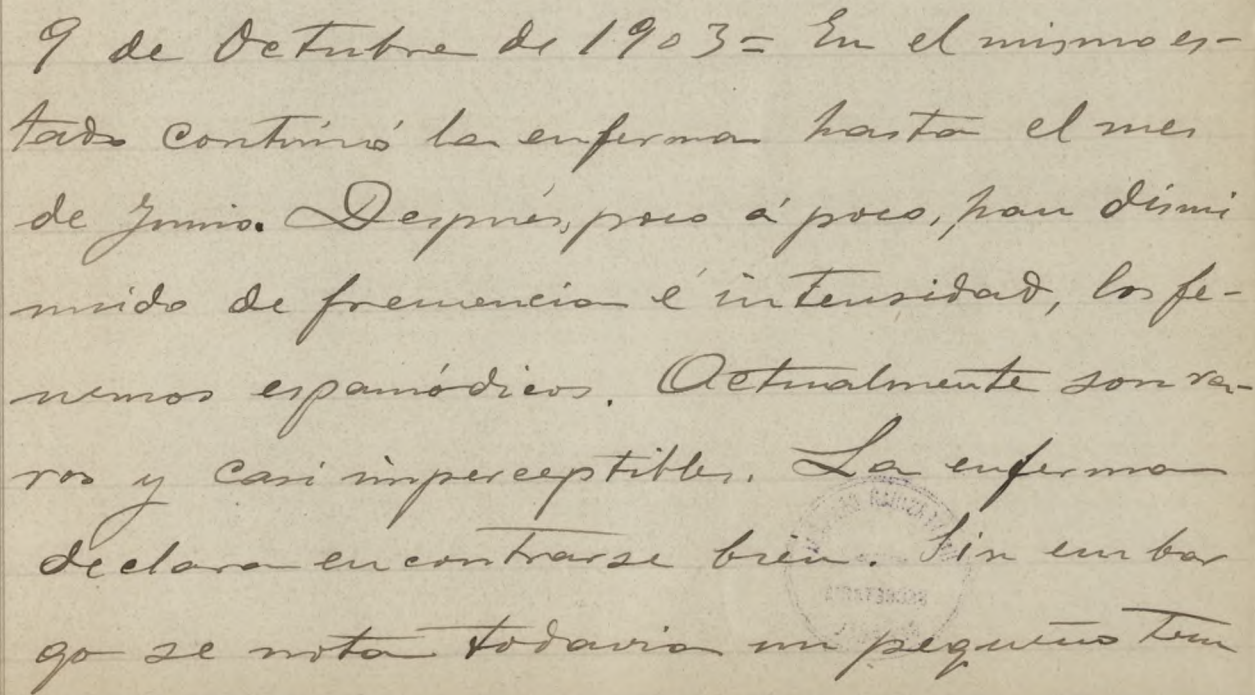 9 de Octubre de 1903= En el mismo es-
tado continuó la enferma hasta el mes
de Junio. Después, poco á poco, han dismi
nuido de frecuencia é intensidad, los fe-
nemos espamódicos. Actualmente son ra-
ros y casi imperceptibles. La enferma
declara encontrarse bien. Sin embar
go se nota todavia un pequeño tem
SECRETARIA